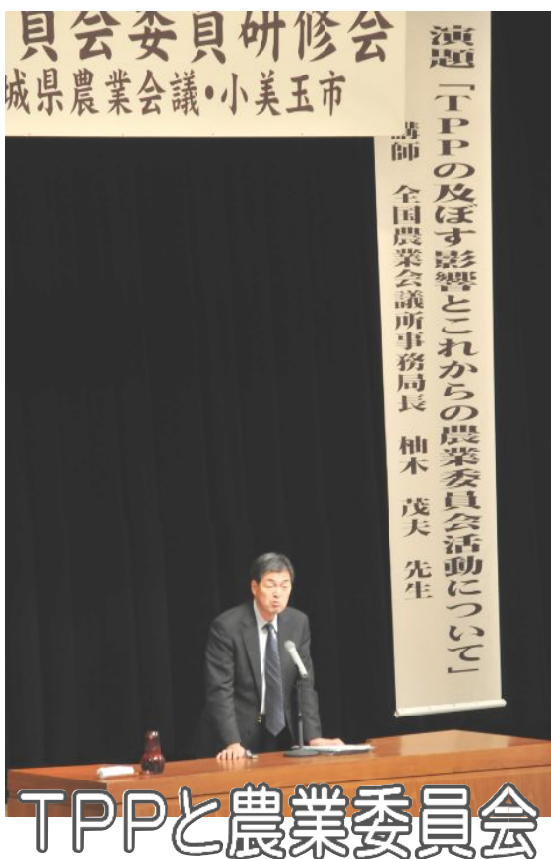 員会委員研修会
城県農業会議・小美玉市
演題「TPPの及ぼす影響とこれからの農業委員会活動について」
講師 全国農業会議所事務局長 柚木 茂夫 先生
TPPと農業委員会